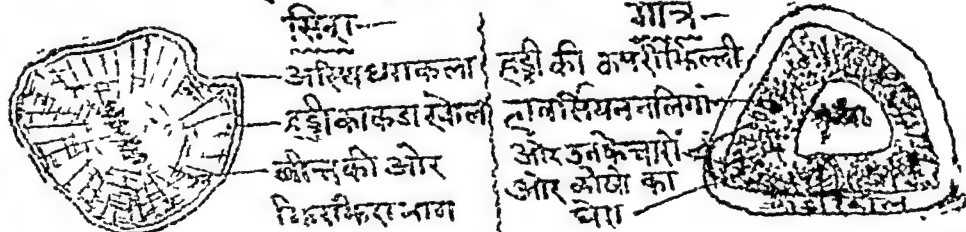 सिरा-
अस्थिधराकला
हड्डी का कडा खोल
बीच की ओर
किरकिरा भाग
गात्र-
हड्डी की ऊपरी झिल्ली
हावर्सियन नलिगां
और उनके चारों
और कोषो का
घेरा